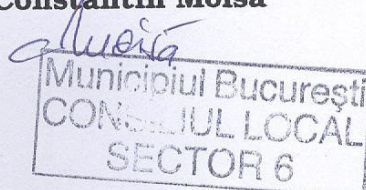 Constantin Moisă
Municipiul București
CONSILIUL LOCAL
SECTOR 6